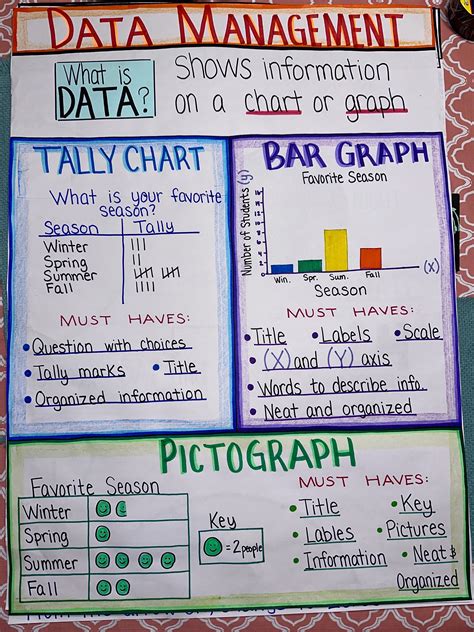 DATA MANAGEMENT
What is
DATA?
Shows information
on a chart or graph
TALLY CHART
What is your favorite
season?
Season Tally
Winter
Spring
Summer
Fall
MUST HAVES:
• Question with choices
• Tally marks • Title
• Organized information
BAR GRAPH
Favorite Season
Number of Students (y)
Win. Spr. Sum. Fall (X)
Season
MUST HAVES:
• Title • Labels • Scale
• (X) and (Y) axis
• Words to describe info.
• Neat and organized
PICTOGRAPH
Favorite Season
Winter
Spring
Summer
Fall
Key
= 2 people
MUST HAVES:
• Title • Key
• Lables • Pictures
• Information • Neat &
Organized